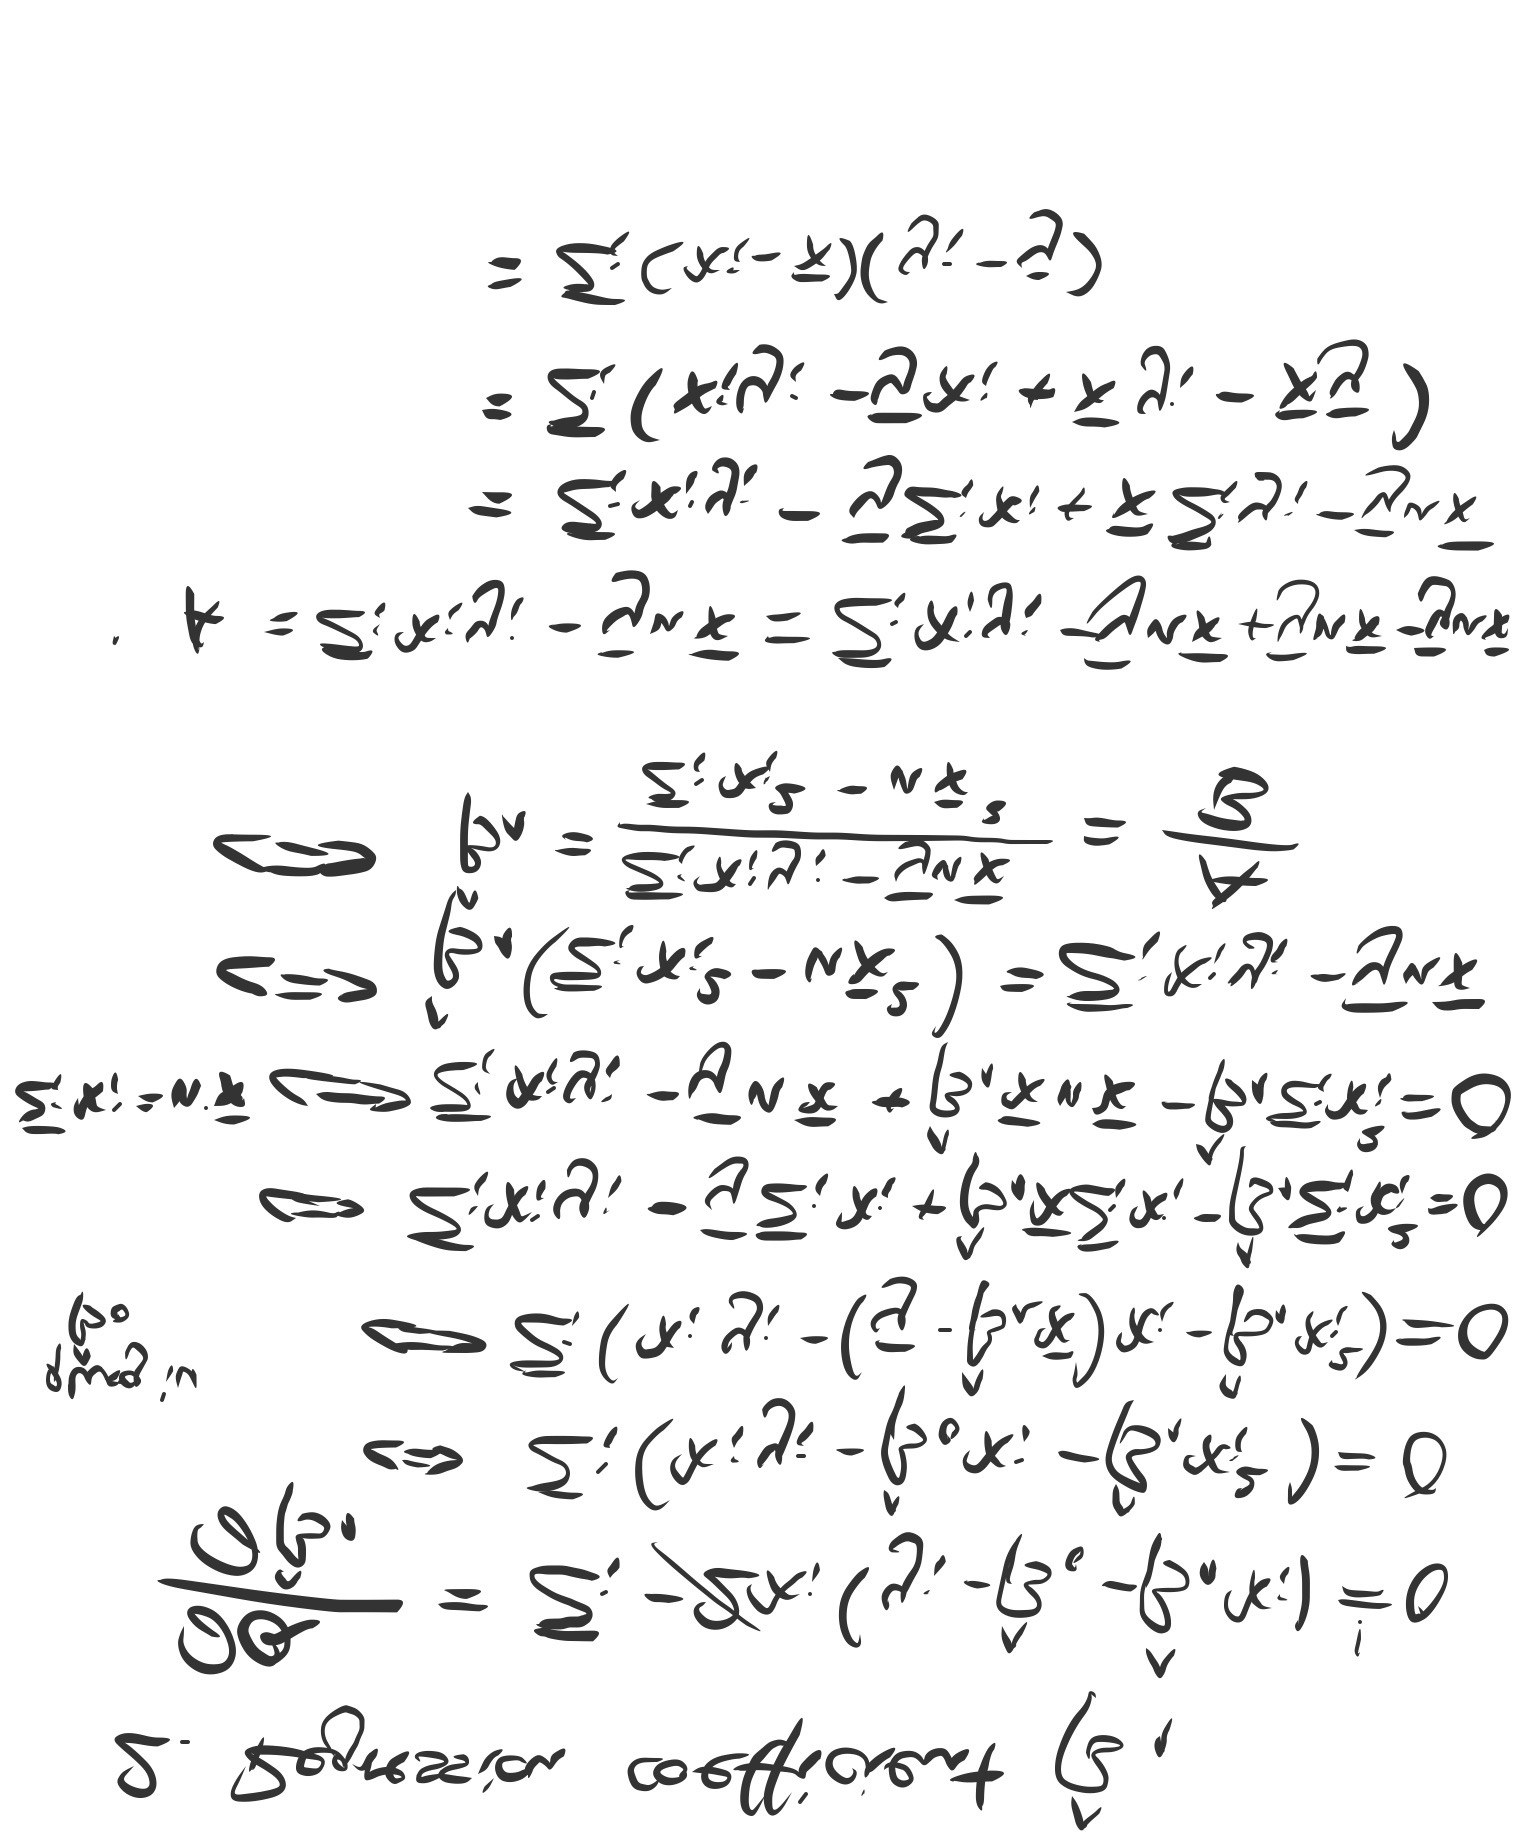 2. Regression coefficient β̂₁
∂Q/∂β̂₁ = Σᵢ -2xᵢ(yᵢ - β̂₀ - β̂₁xᵢ) =! 0
<=> Σᵢ(xᵢyᵢ - β̂₀xᵢ - β̂₁xᵢ²) = 0
plug in β̂₀ <=> Σᵢ(xᵢyᵢ - (ȳ - β̂₁x̄)xᵢ - β̂₁xᵢ²) = 0
<=> Σᵢxᵢyᵢ - ȳΣᵢxᵢ + β̂₁x̄Σᵢxᵢ - β̂₁Σᵢxᵢ² = 0
Σᵢxᵢ = nx̄ <=> Σᵢxᵢyᵢ - ȳnx̄ + β̂₁x̄nx̄ - β̂₁Σᵢxᵢ² = 0
<=> β̂₁(Σᵢxᵢ² - nx̄²) = Σᵢxᵢyᵢ - ȳnx̄
<=> β̂₁ = (Σᵢxᵢyᵢ - ȳnx̄)/(Σᵢxᵢ² - nx̄²) = A/B
A = Σᵢxᵢyᵢ - ȳnx̄ = Σᵢxᵢyᵢ - ȳnx̄ + ȳnx̄ - ȳnx̄
= Σᵢxᵢyᵢ - ȳΣᵢxᵢ + x̄Σᵢyᵢ - ȳnx̄
= Σᵢ(xᵢyᵢ - ȳxᵢ + x̄yᵢ - x̄ȳ)
= Σᵢ(xᵢ - x̄)(yᵢ - ȳ)